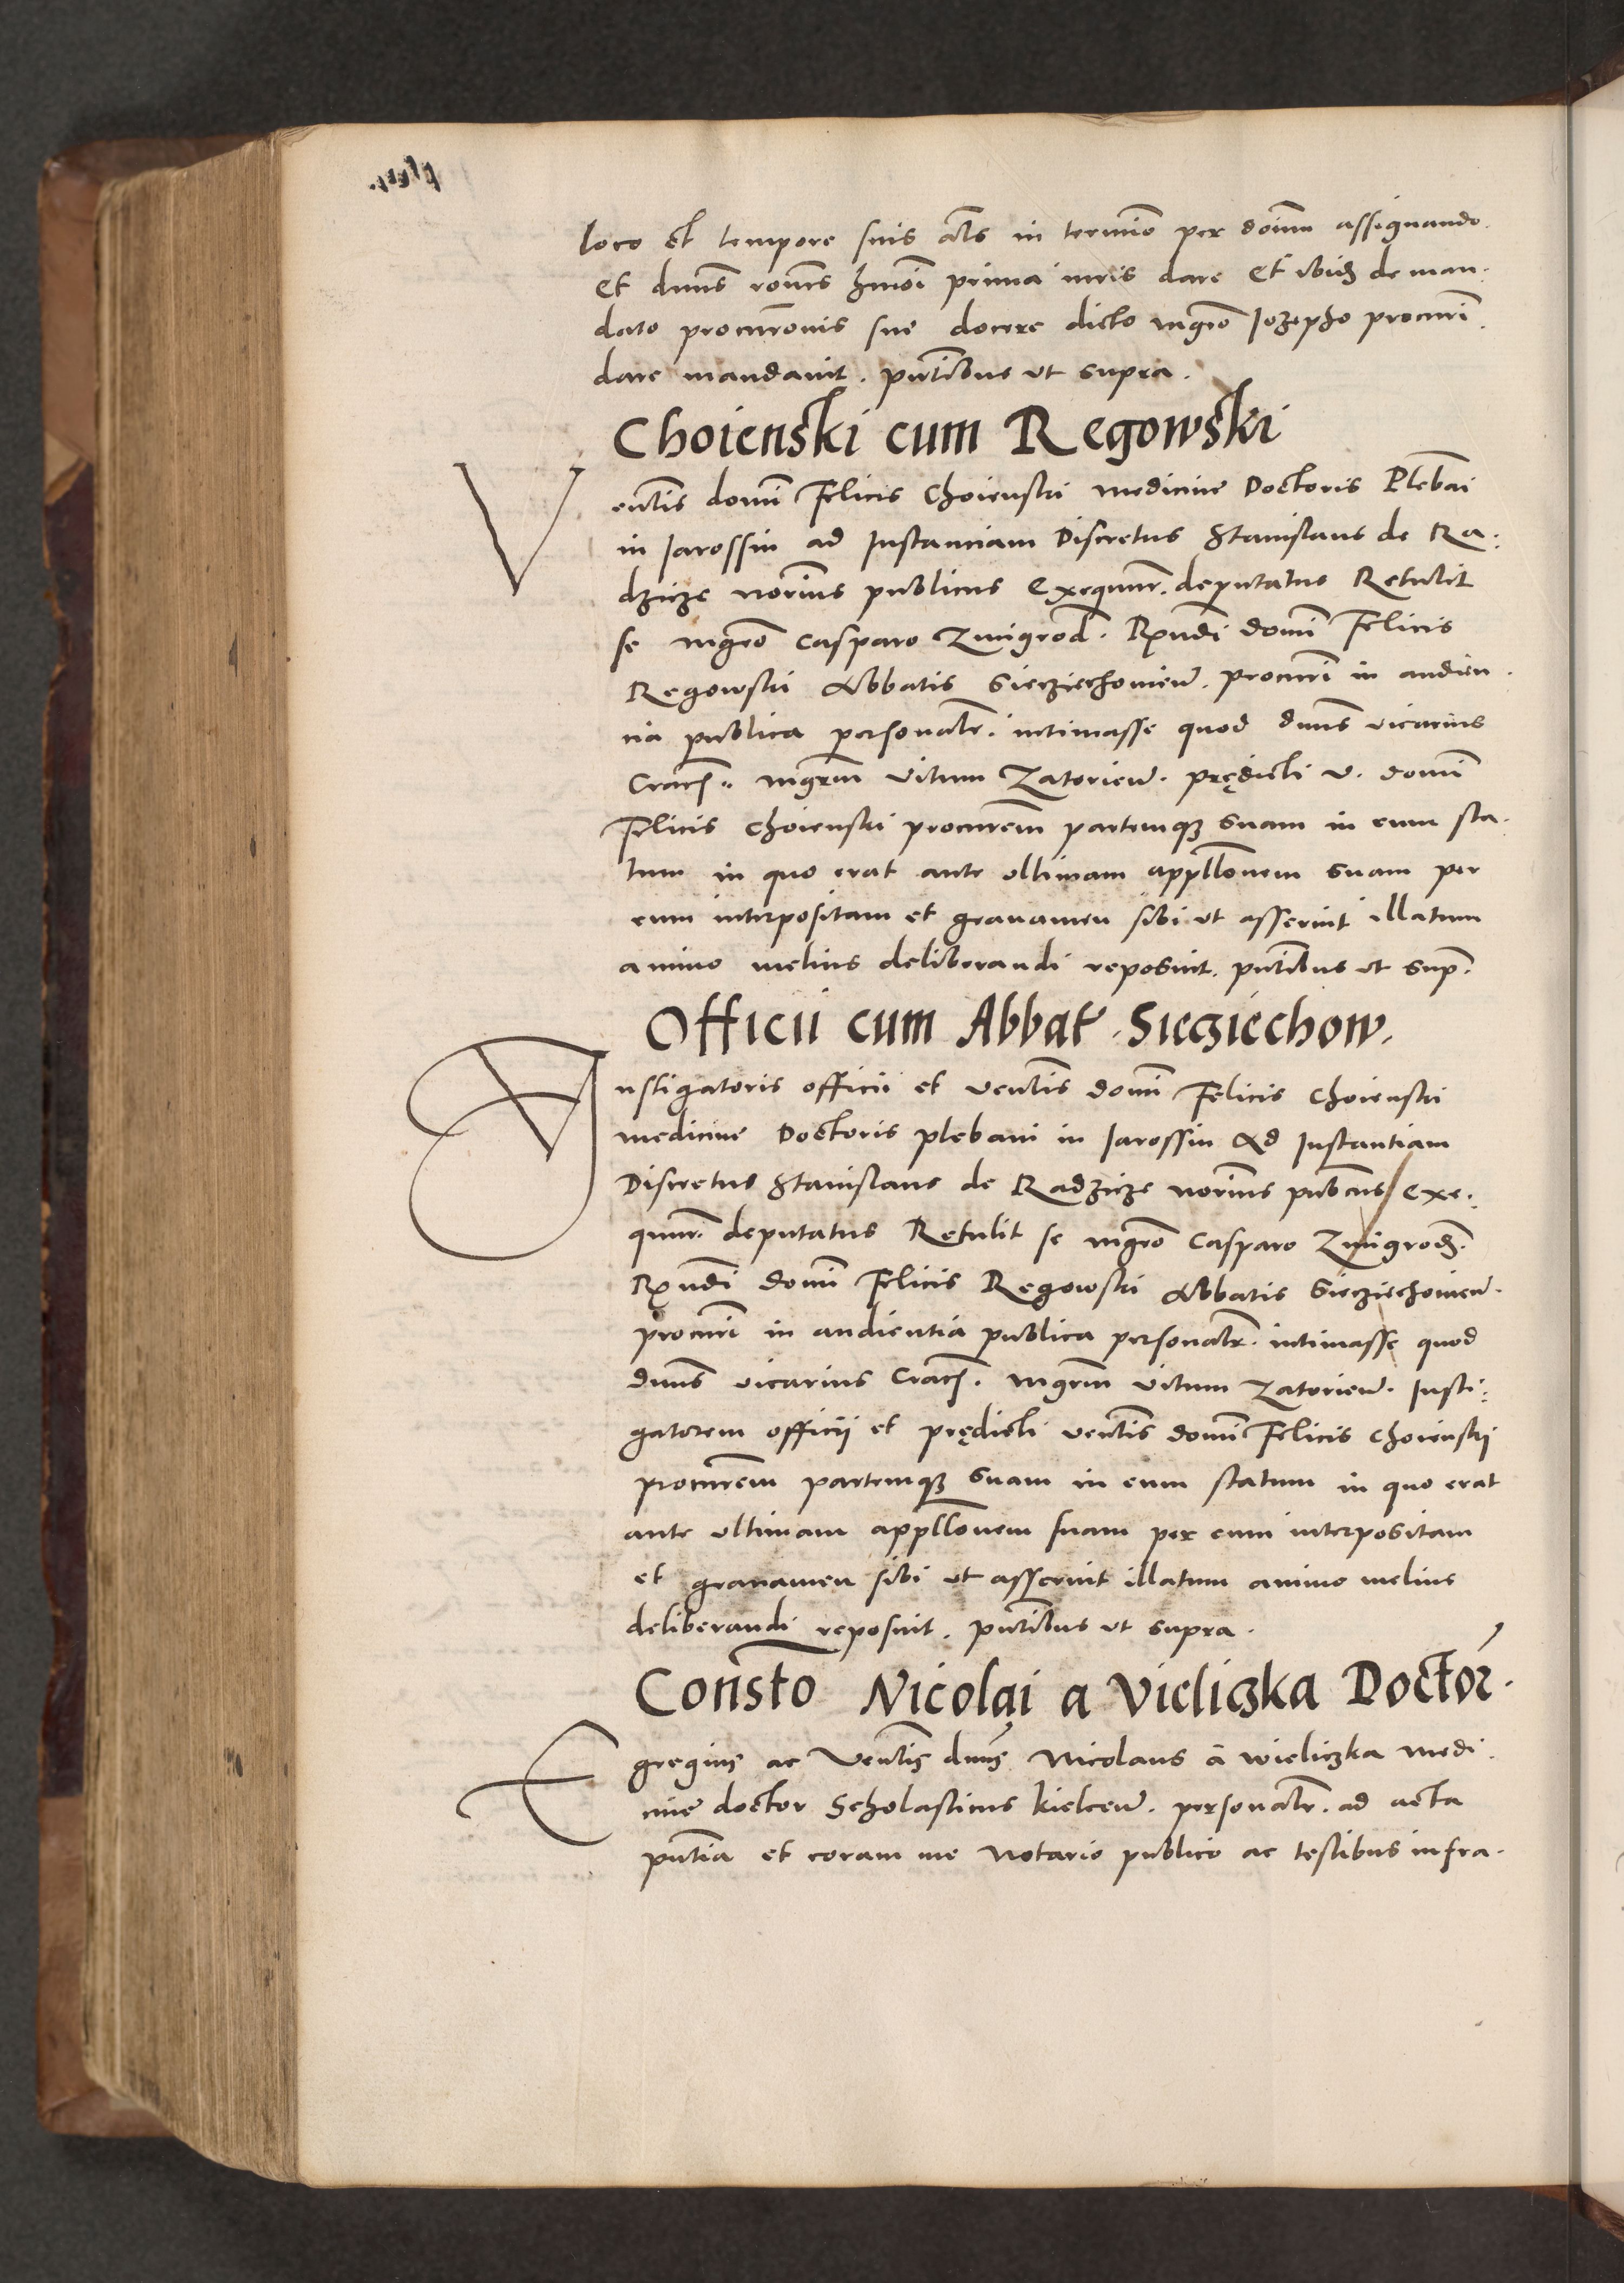 loco et tempore suis acts in termino per dominum assignando
et dnus rōnes hmōi prima iuris dare Et ibidem de man-
dato procurōnis sue docere dicto mgro Jozepho procuri
dare mandavit. pntibus ut supra.
Choienski cum Regowski
Venlis domi Felicis Choienski medicine Doctoris Plebāi
in Jarossin ad Instanciam Discretus Stanislaus de Ra-
dzicze norius publicus Exequur. deputatus Retulit
se mgro Casparo Zmigrod. Rxndi domi Felicis
Regowski Abbatis Siecziechovien. procuri in audien-
cia publica personalr. intimasse quod dnus vicarius
Crac. mgrm Vitum Zatorien. prędicti v. domi
Felicis Choienski procurem partemq suam in eum sta-
tum in quo erat ante ultimam appllonem suam per
eum interpositam et gravamen sibi ut asseruit illatum
animo melius deliberandi reposuit. pntibus ut sup.
Officii cum Abbat. Siecziechow.
Instigatoris officii et venlis domi Felicis Choienski
medicine Doctoris plebani in Jarossin Ad Instantiam
Discretus Stanislaus de Radzicze norius pubcus Exe-
quur. deputatus Retulit se mgro Casparo Zmigrod.
Rxndi domi Felicis Regowski Abbatis Siecziechovien.
procuri in audientia publica personalr. intimasse quod
dnus vicarius Crac. mgrm Vitum Zatorien. Insti-
gatorem officii et prędicti venlis domi Felicis Choienskij
procurem partemq suam in eum statum in quo erat
ante ultimam appllonem suam per eum interpositam
et gravamen sibi ut asseruit illatum animo melius
deliberandi reposuit. pntibus ut supra.
Consto Nicolai a Vieliczka Doctor.
Egregius ac Venlis dnus Nicolaus à Wieliczka medi-
cine doctor Scholasticus Kielcen. personalr. ad acta
pntia et coram me Notario publico ac testibus infra-